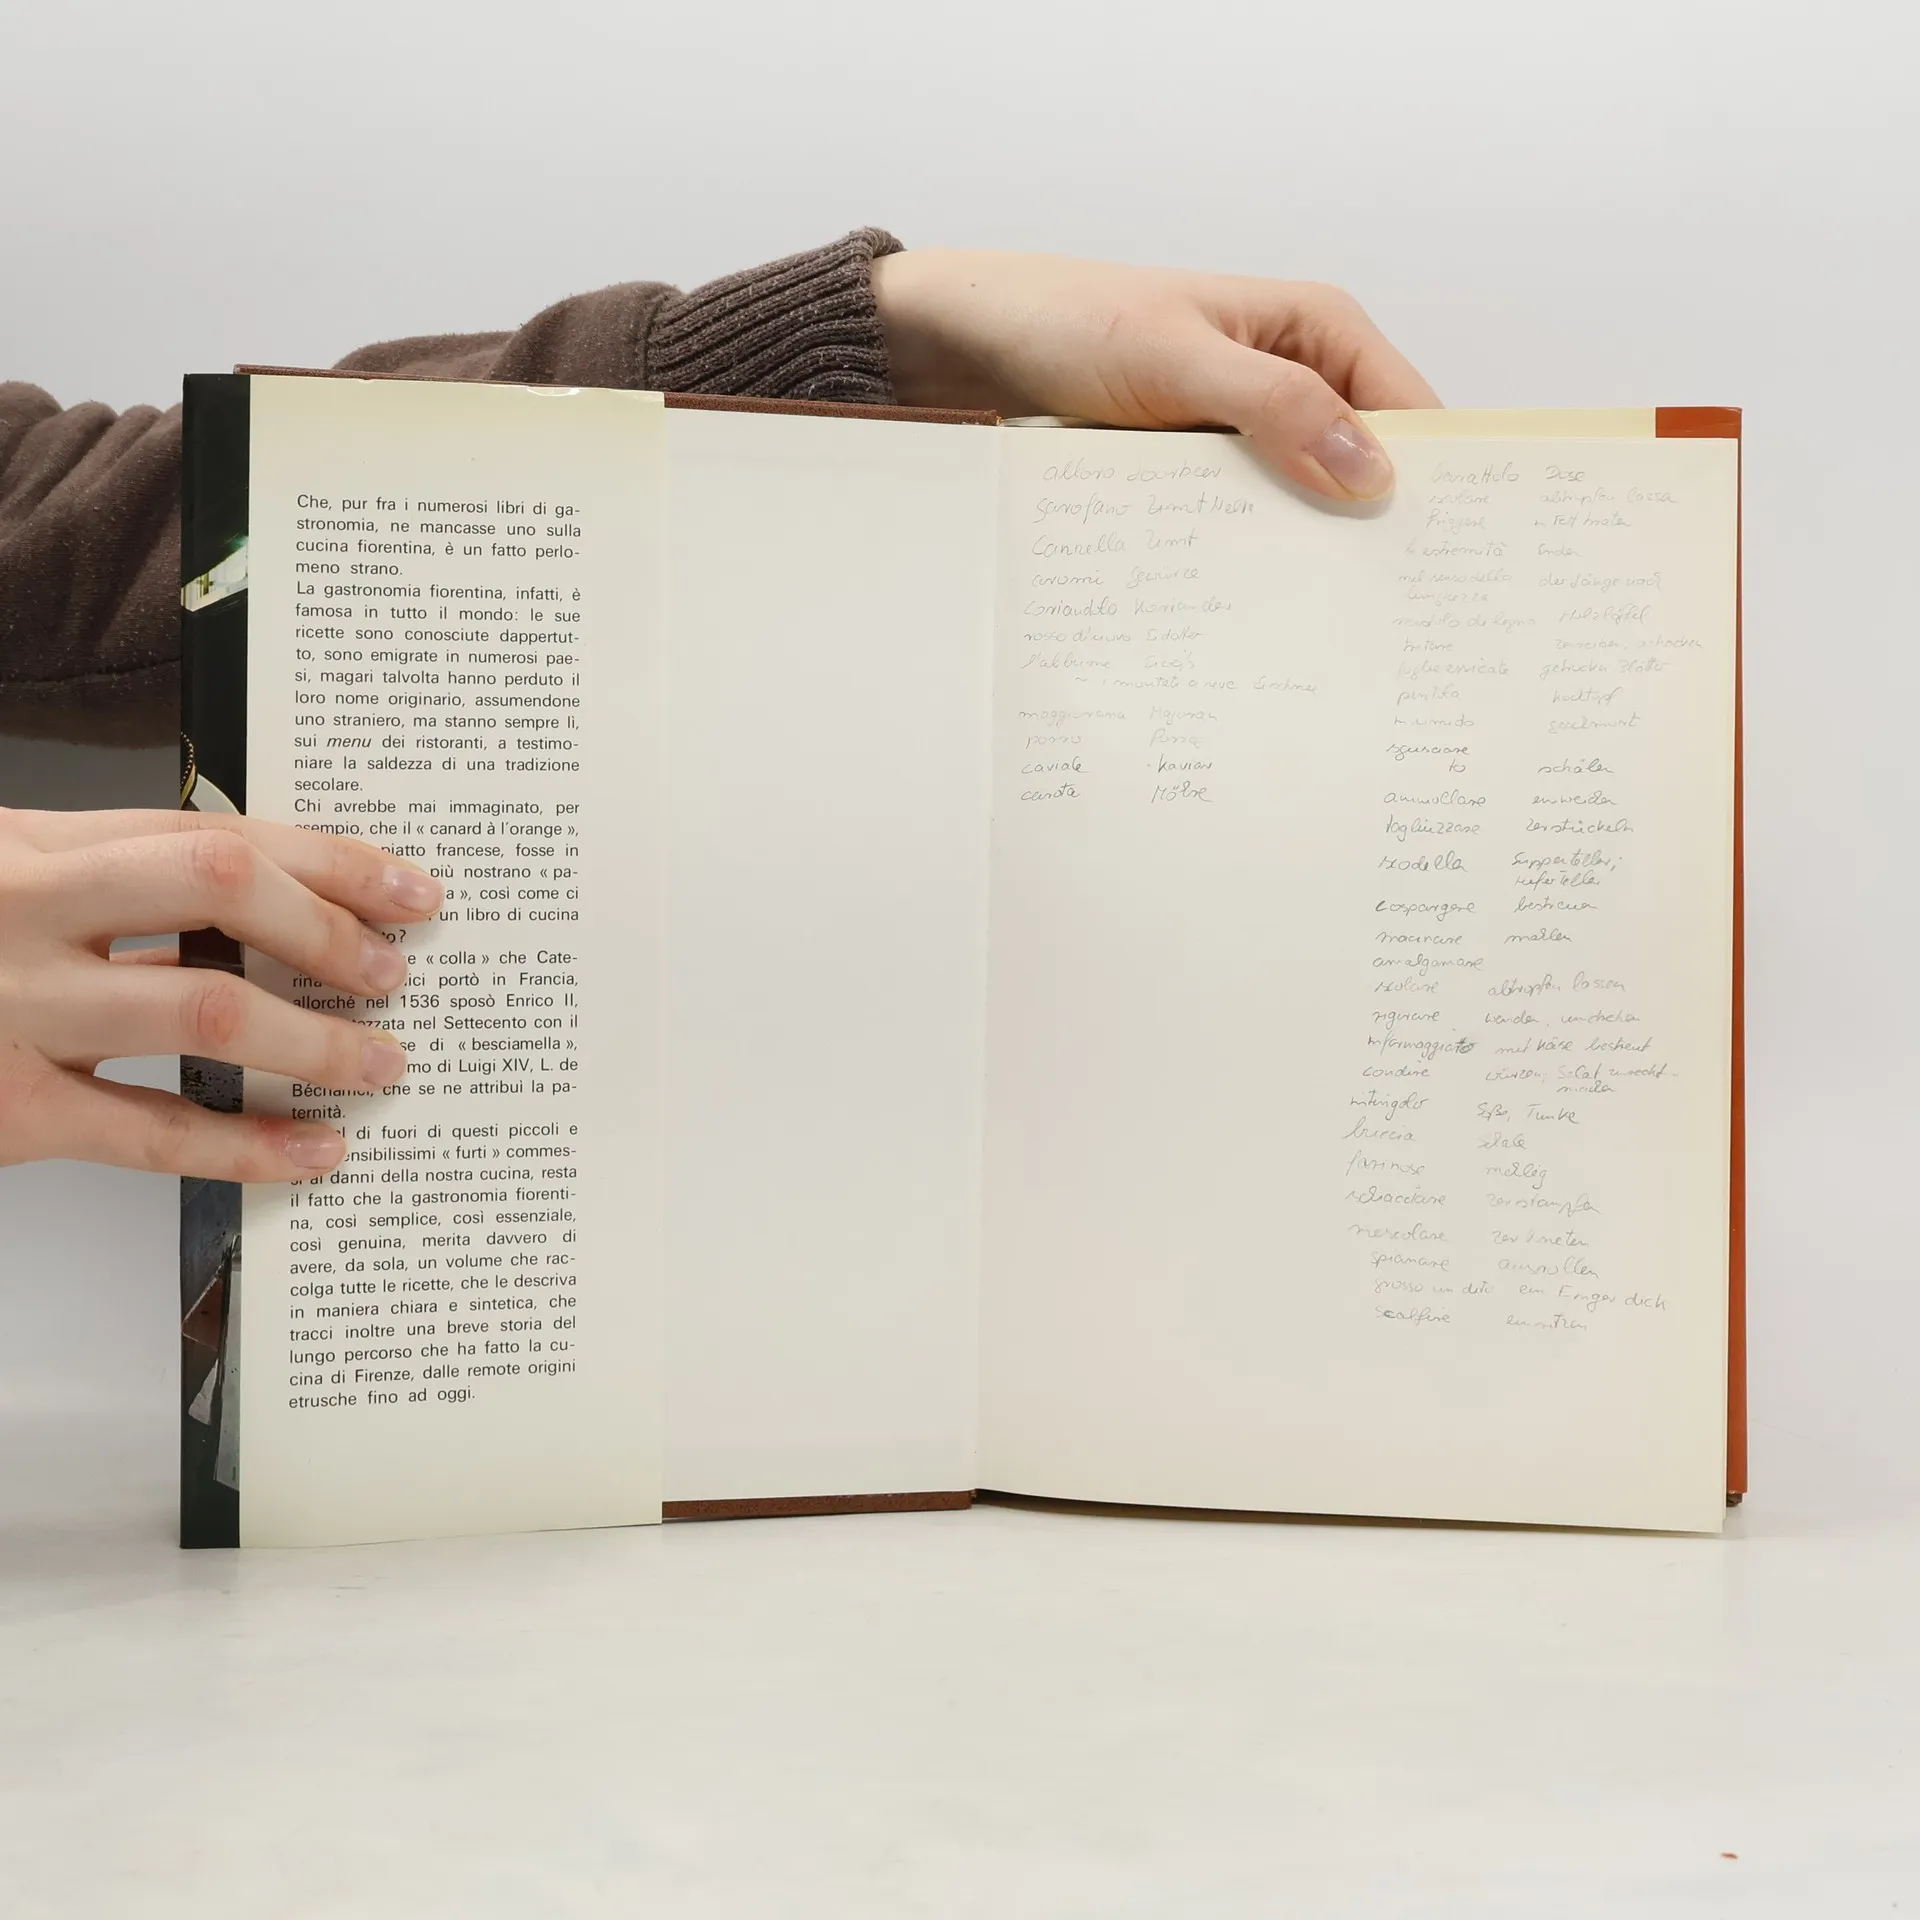 Che, pur fra i numerosi libri di ga-
stronomia, ne mancasse uno sulla
cucina fiorentina, è un fatto perlo-
meno strano.
La gastronomia fiorentina, infatti, è
famosa in tutto il mondo: le sue
ricette sono conosciute dappertut-
to, sono emigrate in numerosi pae-
si, magari talvolta hanno perduto il
loro nome originario, assumendone
uno straniero, ma stanno sempre lì,
sui menu dei ristoranti, a testimo-
niare la saldezza di una tradizione
secolare.
Chi avrebbe mai immaginato, per
esempio, che il « canard à l'orange »,
piatto francese, fosse in
più nostrano « pa-
a », così come ci
un libro di cucina
to?
e « colla » che Cate-
rina ici portò in Francia,
allorché nel 1536 sposò Enrico II,
ezzata nel Settecento con il
se di « besciamella »,
mo di Luigi XIV, L. de
Béchamel, che se ne attribuì la pa-
ternità.
al di fuori di questi piccoli e
ensibilissimi « furti » commes-
si ai danni della nostra cucina, resta
il fatto che la gastronomia fiorenti-
na, così semplice, così essenziale,
così genuina, merita davvero di
avere, da sola, un volume che rac-
colga tutte le ricette, che le descriva
in maniera chiara e sintetica, che
tracci inoltre una breve storia del
lungo percorso che ha fatto la cu-
cina di Firenze, dalle remote origini
etrusche fino ad oggi.
alloro
garofano Zimt Nelke
Cannella Zimt
aromi Gewürze
coriandolo Koriander
rosso d'uovo Eidotter
l'albume Eiweiß
maggiorana Majoran
porro Porree
caviale Kaviar
carota Möhre
barattolo Dose
scolare abtropfen lassen
friggere in Fett braten
le estremità Enden
nel senso della der Länge nach
lunghezza
mestolo di legno Holzlöffel
tritare
foglie essicate
pentola Kochtopf
schälen
ammollare einweichen
tagliuzzare zerstückeln
scodella Suppenteller;
tiefer Teller
cospargere bestreuen
macinare mahlen
amalgamare
scolare abtropfen lassen
rigirare wenden, umdrehen
informaggiato mit Käse bestreut
condire würzen; Salat zurecht-
machen
intingolo Soße, Tunke
buccia Schale
farinoso mehlig
schiacciare zerstampfen
mescolare zerkneten
spianare ausrollen
grosso un dito ein Finger dick
scalfire einritzen